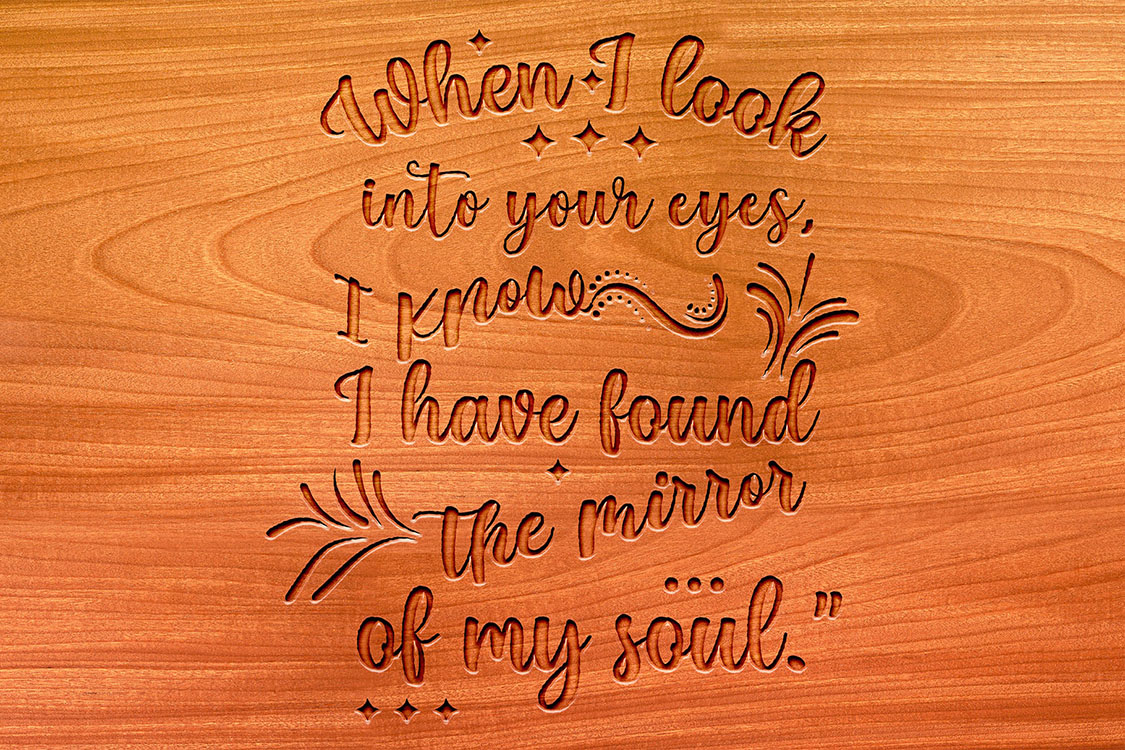 When I look
into your eyes,
I know
I have found
the mirror
of my soul."